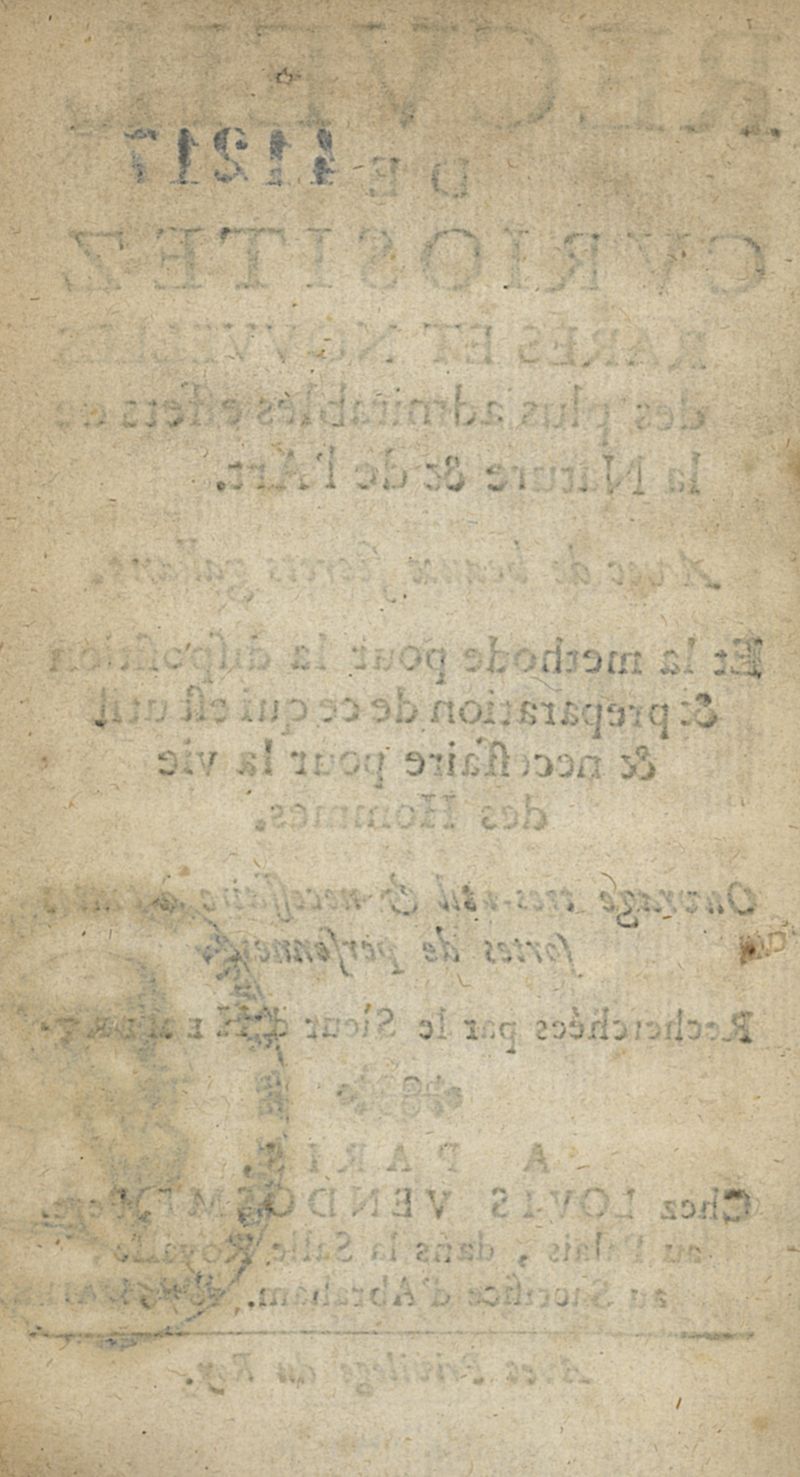 RECVEIL
DE
41217
CVRIOSITEZ
RARES ET NOVVELLES
des plus admirables effets de
la Nature & de l'Art.
Avec de beaux secrets gallans.
Et la methode pour la disposition
& preparation de ce qui est util
& necessaire pour la vie
des Hommes.
Ouvrage tres-util & necessaire
sortes de personnes.
Recherchées par le Sieur
A PARIS.
Chez LOVIS VENDOSME
au Palais, dans la Salle Royalle
au Sacrifice d'Abraham.
Avec Privilege du Roy.